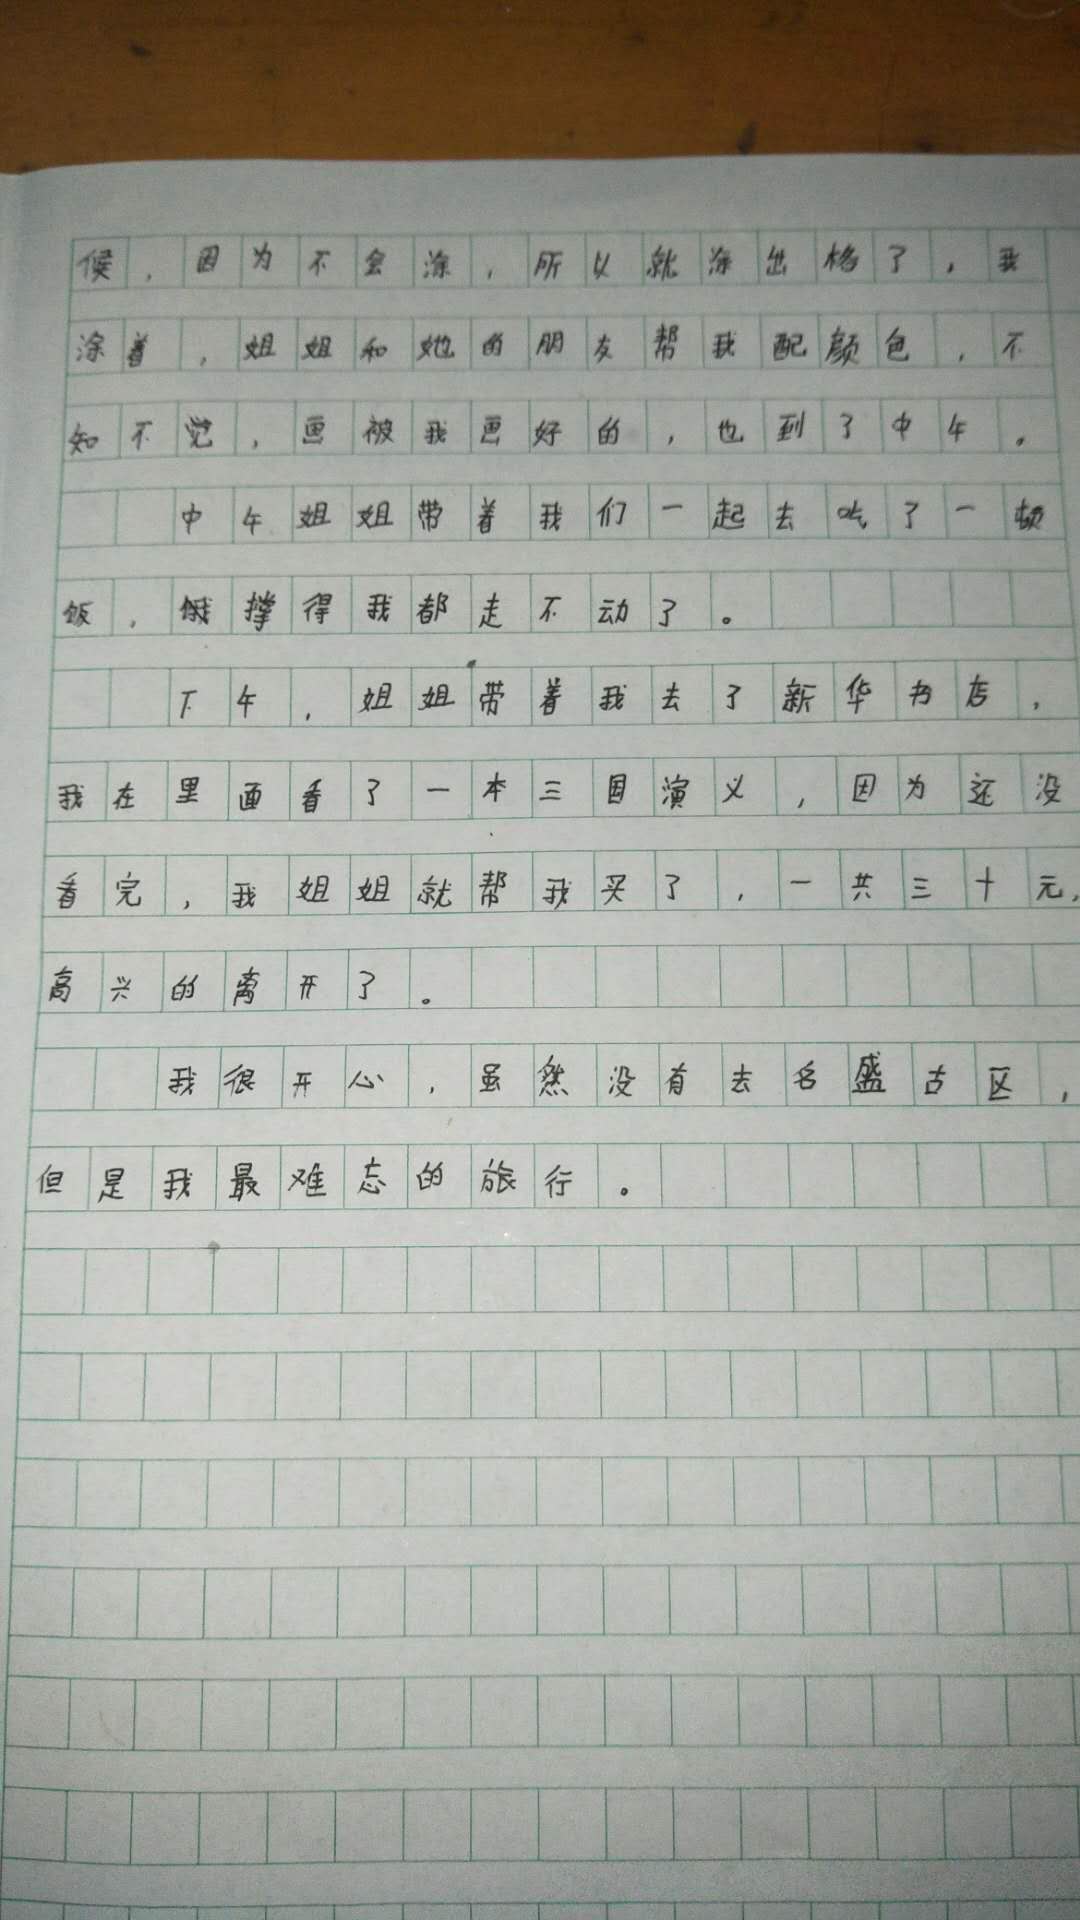 候，因为不会涂，所以就涂出格了，我
涂着，姐姐和她的朋友帮我配颜色，不
知不觉，画被我画好的，也到了中午。
中午姐姐带着我们一起去吃了一顿
饭，撑得我都走不动了。
下午，姐姐带着我去了新华书店，
我在里面看了一本三国演义，因为还没
看完，我姐姐就帮我买了，一共三十元，
高兴的离开了。
我很开心，虽然没有去名盛古区，
但是我最难忘的旅行。